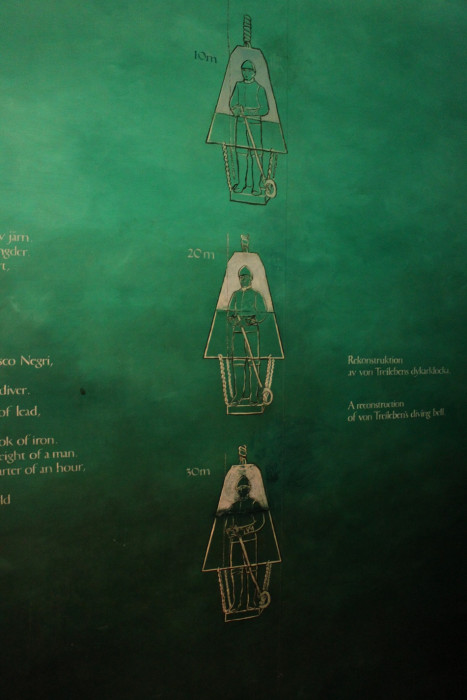 10m
20m
v järn.
ngder
rt,
sco Negri,
diver.
of lead,
ok of iron.
eight of a man.
arter of an hour,
ld
30m
Rekonstruktion
av von Treilebens dykarklocka.
A reconstruction
of von Treileben's diving bell